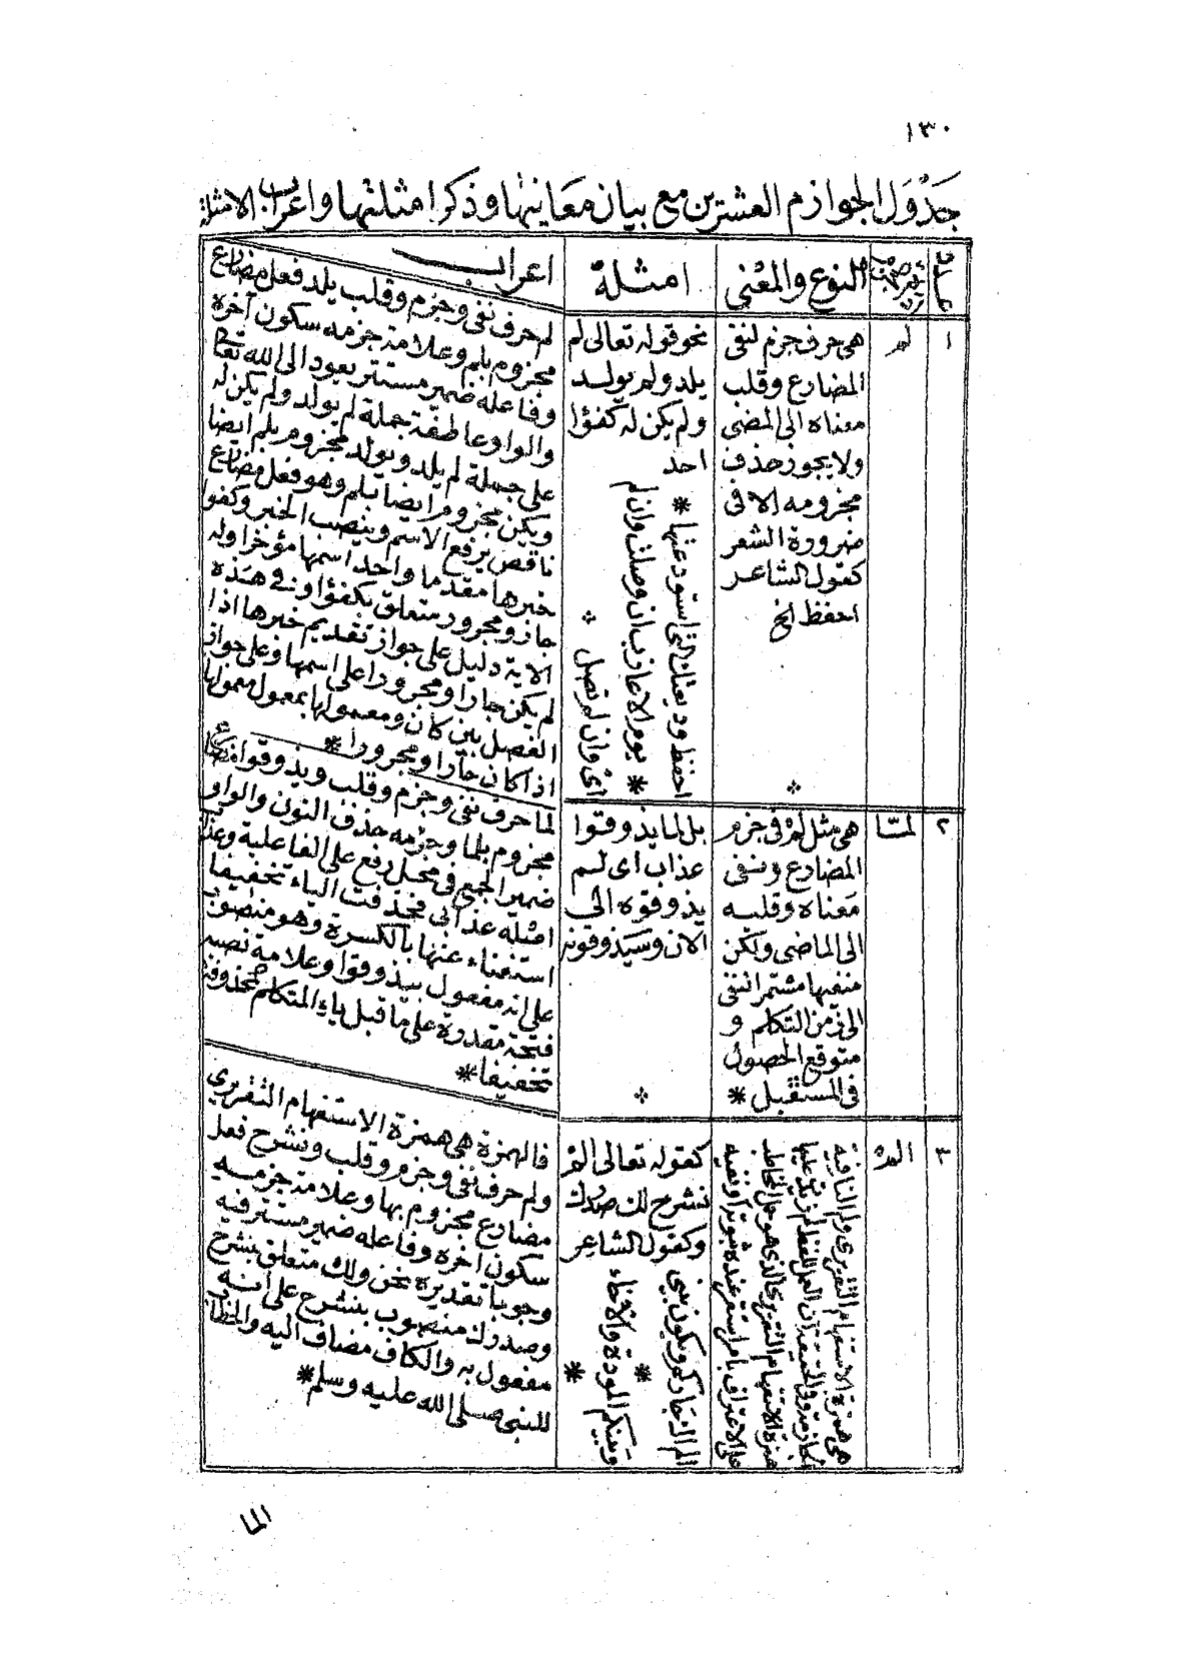 ١٣٠
جدول الجوازم العشرين مع بيان معانيها وذكر امثلتها واعراب الامثلة
عدد
النوع والمعنى
امثلة
اعراب
١
لم
هى حرف جزم لنفى
المضارع وقلب
معناه الى المضى
ولا يجوز حذف
مجزومه الا فى
ضرورة الشعر
كقول الشاعر
احفظ الخ
نحو قوله تعالى لم
يلد ولم يولد
ولم يكن له كفؤا
احد
احفظ وديعتك التى استودعتها *
يوم الاعازب ان وصلت وان لم *
اى وان لم تصل
لم حرف نفى وجزم وقلب يلد فعل مضارع
مجزوم بلم وعلامة جزمه سكون آخره
وفاعله ضمير مستتر يعود الى الله تعالى
والواو عاطفة جملة لم يولد ولم يكن له
على جملة لم يلد ويولد مجزوم بلم ايضا
ويكن مجزوم ايضا بلم وهو فعل مضارع
ناقص يرفع الاسم وينصب الخبر وكفوا
خبرها مقدما واحد اسمها مؤخرا وله
جار ومجرور متعلق بكفؤا وفى هذه
الاية دليل على جواز تقديم خبرها اذا
لم يكن جارا ومجرورا على اسمها وعلى جواز
الفصل بين كان ومعمولها بمعمول معمولها
اذا كان جارا ومجرورا *
٢
لمّا
هى مثل لم فى جزم
المضارع ونفى
معناه وقلبه
الى الماضى ولكن
منفيها مستمر النفى
الى زمن التكلم و
متوقع الحصول
فى المستقبل *
بل لما يذوقوا
عذاب اى لم
يذوقوه الى
الان وسيذوقونه
لما حرف نفى وجزم وقلب ويذوقوا مضارع
مجزوم بلما وجزمه حذف النون والواو
ضمير الجمع فى محل رفع على الفاعلية وعذاب
اصله عذابى فحذفت الياء تخفيفا
استغناء عنها بالكسرة وهو منصوب
على انه مفعول بيذوقوا وعلامة نصبه
فتحة مقدرة على ما قبل ياء المتكلم المحذوفة
تخفيفا *
٣
الم
هى همزة الاستفهام التقريرى ولم النافية
الجازمة وفى الحقيقة ان العمل للفظ لم زيد عليها
همزة الاستفهام التقريرى الذى هو حمل المخاطب
على الاعتراف بامر استقر عنده ثبوته او نفيه
كقوله تعالى الم
نشرح لك صدرك
وكقول الشاعر
الم اك جاركم ويكون بينى *
وبينكم المودة والاخاء *
فالهمزة هى همزة الاستفهام التقريرى
ولم حرف نفى وجزم وقلب ونشرح فعل
مضارع مجزوم بها وعلامة جزمه
سكون اخره وفاعله ضمير مستتر فيه
وجوبا تقديره نحن ولك متعلق بنشرح
وصدرك منصوب بنشرح على انه
مفعول به والكاف مضاف اليه والخطاب
للنبى صلى الله عليه وسلم *
الما